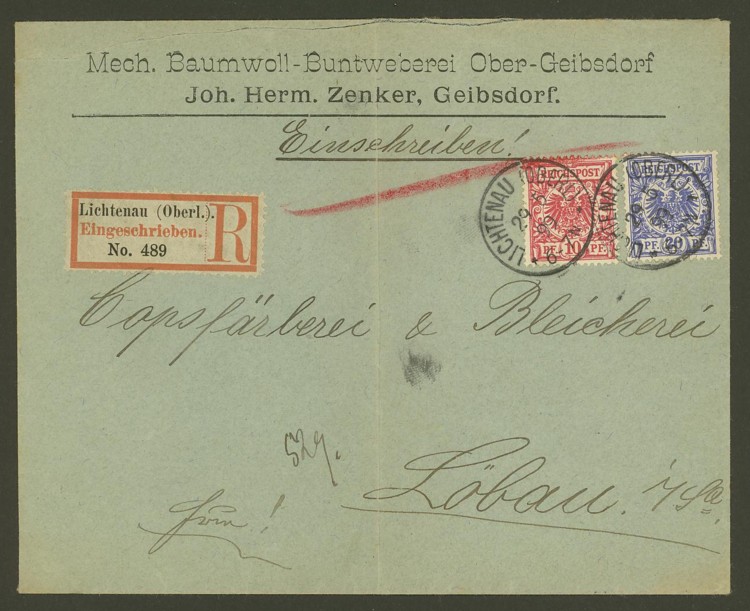 Mech. Baumwoll-Buntweberei Ober-Geibsdorf
Joh. Herm. Zenker, Geibsdorf.
Einschreiben!
REICHSPOST
10 PF.
REICHSPOST
PF. 20 PF.
LICHTENAU (OBERL.)
LICHTENAU (OBERL.)
Lichtenau (Oberl.).
Eingeschrieben.
No. 489
R
Copsfärberei & Bleicherei
529.
Löbau i/Sa